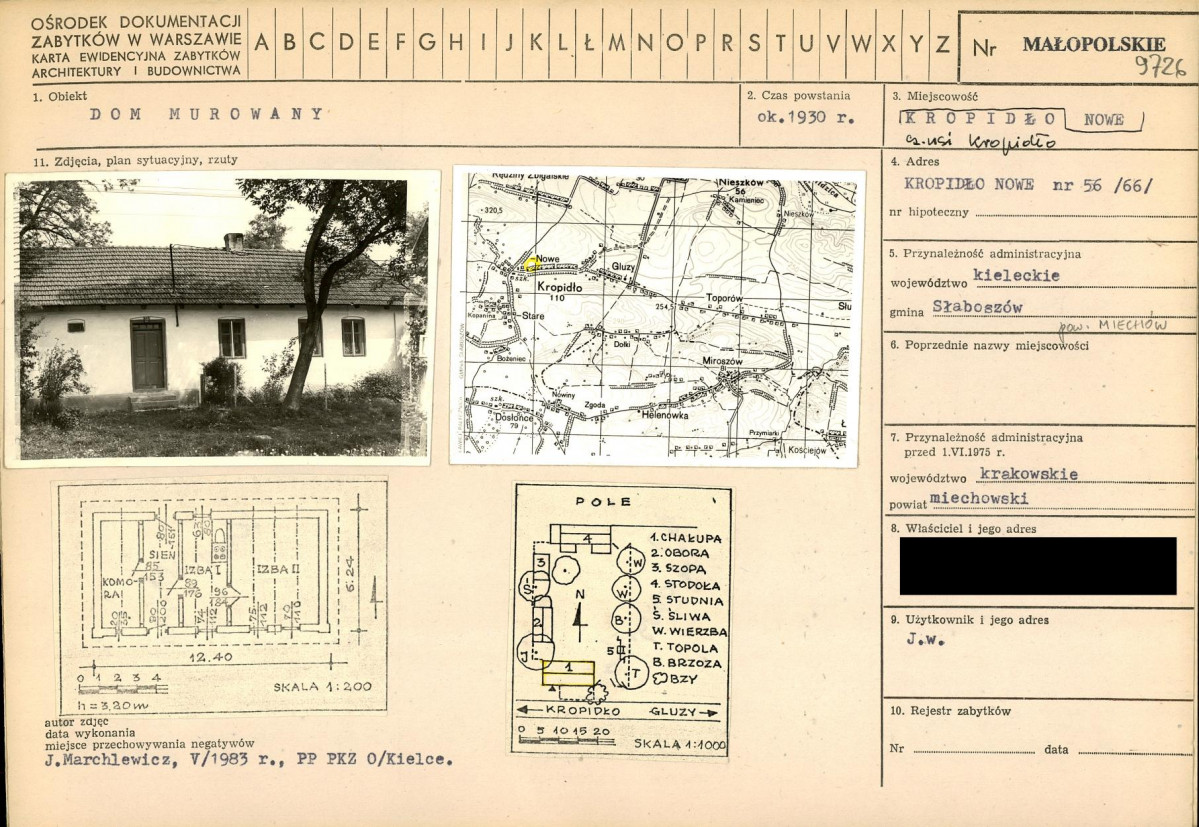 OŚRODEK DOKUMENTACJI
ZABYTKÓW W WARSZAWIE
KARTA EWIDENCYJNA ZABYTKÓW
ARCHITEKTURY I BUDOWNICTWA
A B C D E F G H I J K L Ł M N O P R S T U V W X Y Z
Nr MAŁOPOLSKIE
9726
1. Obiekt
DOM MUROWANY
2. Czas powstania
ok.1930 r.
3. Miejscowość
KROPIDŁO NOWE
cz. wsi Kropidło
4. Adres
KROPIDŁO NOWE nr 56 /66/
nr hipoteczny
5. Przynależność administracyjna
województwo kieleckie
gmina Słaboszów
pow. MIECHÓW
6. Poprzednie nazwy miejscowości
7. Przynależność administracyjna
przed 1.VI.1975 r.
województwo krakowskie
powiat miechowski
8. Właściciel i jego adres
9. Użytkownik i jego adres
J.w.
10. Rejestr zabytków
Nr data
11. Zdjęcia, plan sytuacyjny, rzuty
Rędziny Zbigalskie
30
Nieszków
56
Kamieniec
Nieszków
320,5
Nowe
szk.
Kropidło
110
Gluzy
254,5
Toporów
Kopanina
Stare
Bożeniec
Dolki
Miroszów
81
szk.
Nowiny
Zgoda
Dosłońce
79
Helenówka
Przymiarki
Kościejów
SIEŃ
IZBA I
IZBA II
KOMO-
RA
80
151
63
80
85
153
89
176
96
184
20
35
90
200
74
112
75
112
70
110
6.24
12.40
0 1 2 3 4
SKALA 1:200
h = 3,20 m
POLE
1. CHAŁUPA
2. OBORA
3. SZOPA
4. STODOŁA
5. STUDNIA
Ś. ŚLIWA
W. WIERZBA
T. TOPOLA
B. BRZOZA
BZY
4
3
W
Ś
W
N
B
2
5
J
1
T
KROPIDŁO GLUZY
0 5 10 15 20
SKALA 1:1000
autor zdjęc
data wykonania
miejsce przechowywania negatywów
J.Marchlewicz, V/1983 r., PP PKZ O/Kielce.